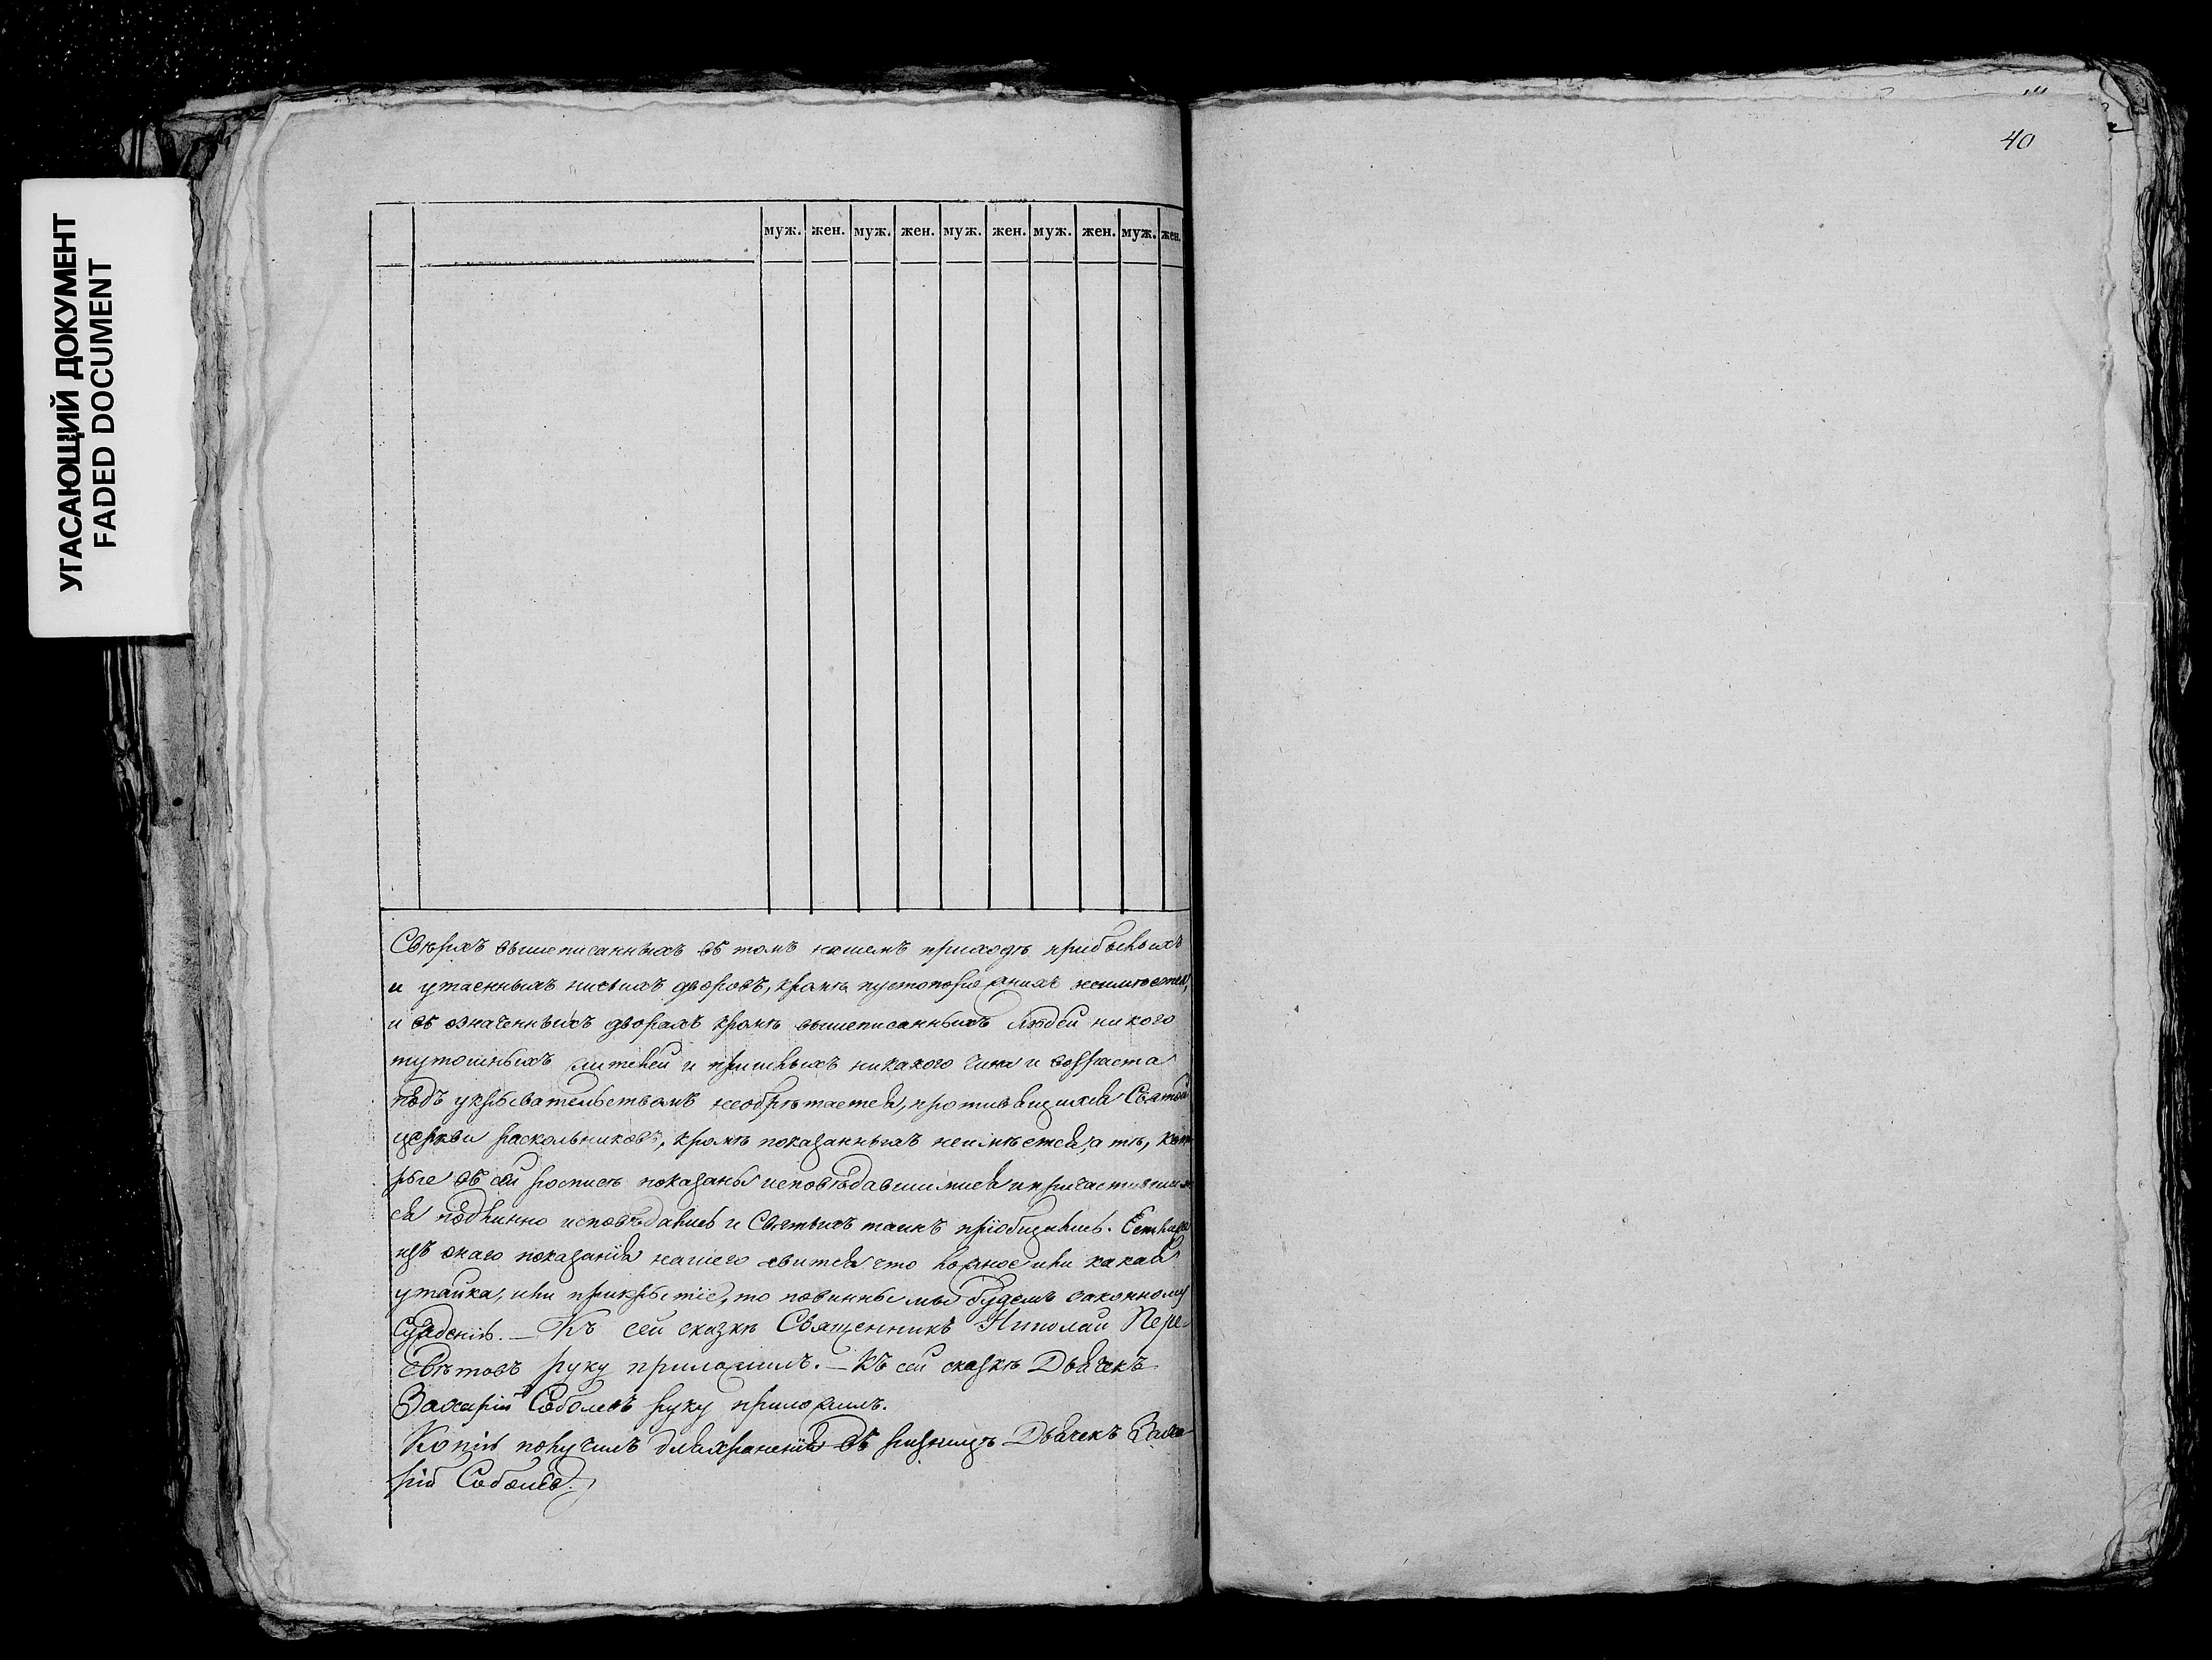 УГАСАЮЩИЙ ДОКУМЕНТ
FADED DOCUMENT
40
муж. жен. муж. жен. муж. жен. муж. жен. муж. жен.
Свѣрхъ вышеписанныхъ въ томъ нашемъ приходѣ прибылыхъ
и утаенныхъ ниє дворовъ, кромѣ пустопорожнихъ неимѣется,
и въ означенныхъ дворахъ кромѣ вышеписанныхъ людей никого
тутошныхъ жителей и пришлыхъ никакого чина и возраста
подъ укрывательствомъ необрѣтается, противящихся Святой
церкви раскольниковъ, кромѣ показанныхъ неимѣется, а тѣ, кото
рые въ сей росписѣ показаны исповѣдавшимися и причастившими
ся подлинно исповѣдались и Святыхъ таинъ пріобщались. Естьли
изъ онаго показанія нашего явится что ложное или какая
утайка, или прикрытіе, то повинны мы будемъ законному
сужденію. — Къ сей сказкѣ Священникъ Николай Пере
свѣтовъ руку приложилъ. — Къ сей сказкѣ Дьячекъ
Захарій Соболевъ руку приложилъ.
Копію получилъ для храненія въ ризницѣ Дьячекъ Заха
рій Соболев.